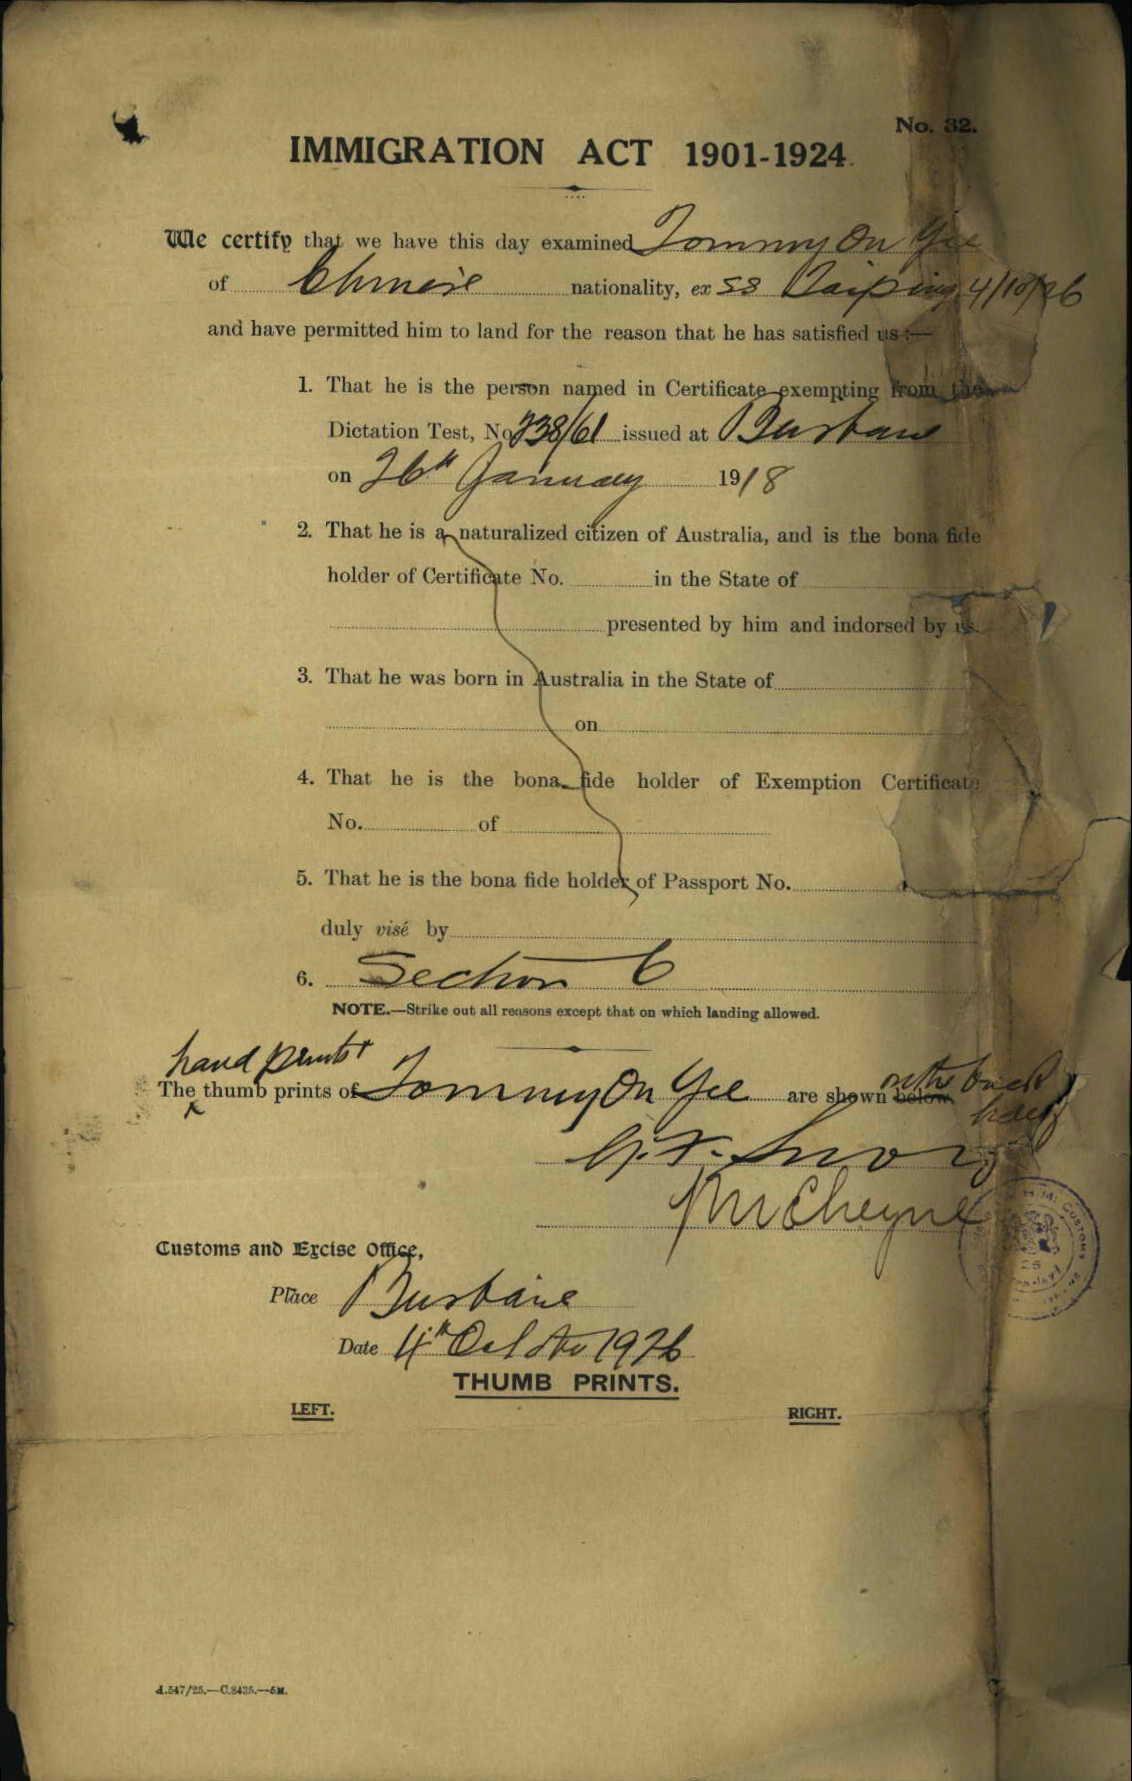 No. 32.
IMMIGRATION ACT 1901-1924.
We certify that we have this day examined Tommy On Yee
of Chinese nationality, ex SS Taiping 4/10/26
and have permitted him to land for the reason that he has satisfied us:—
1. That he is the person named in Certificate exempting from the
Dictation Test, No. 238/61 issued at Brisbane
on 26th January 1918
2. That he is a naturalized citizen of Australia, and is the bona fide
holder of Certificate No. in the State of
presented by him and indorsed by us.
3. That he was born in Australia in the State of
on
4. That he is the bona fide holder of Exemption Certificate
No. of
5. That he is the bona fide holder of Passport No.
duly visé by
6. Section 6
NOTE.—Strike out all reasons except that on which landing allowed.
hand prints
The thumb prints of Tommy On Yee are shown below on the back
McCheyne
Customs and Excise Office,
Place Brisbane
Date 4th October 1926
THUMB PRINTS.
LEFT. RIGHT.
A.547/25.—C.8435.—5M.